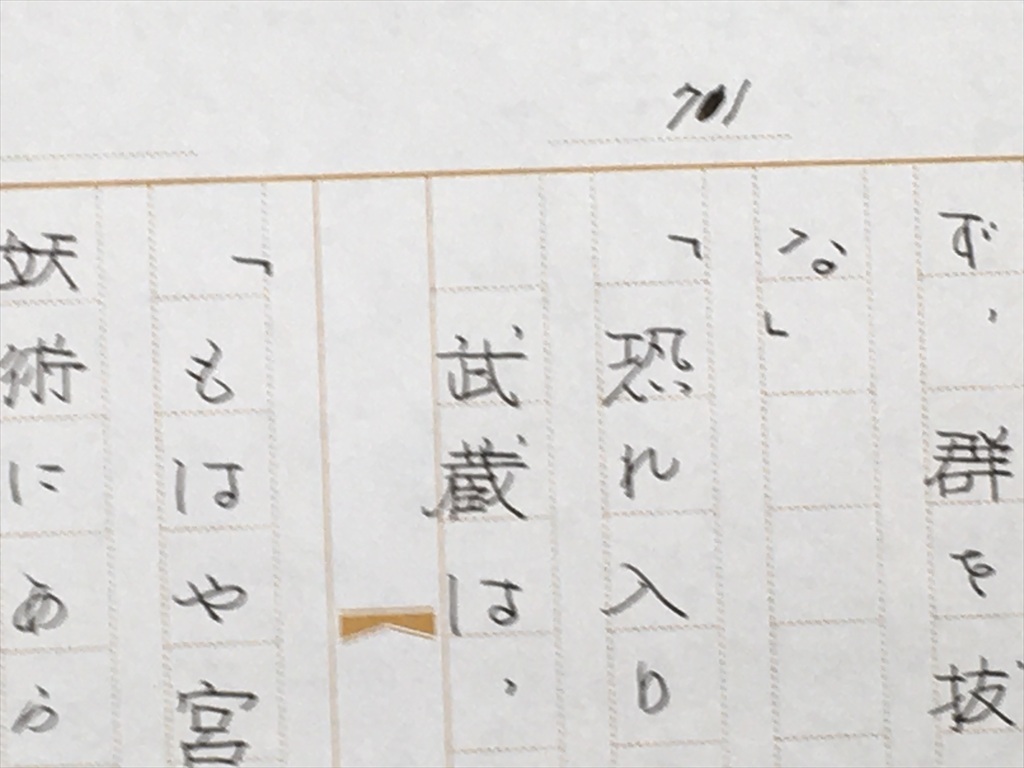 701
ず、群を抜
な」
「恐れ入り
武蔵は、
「もはや宮
妖術にあ